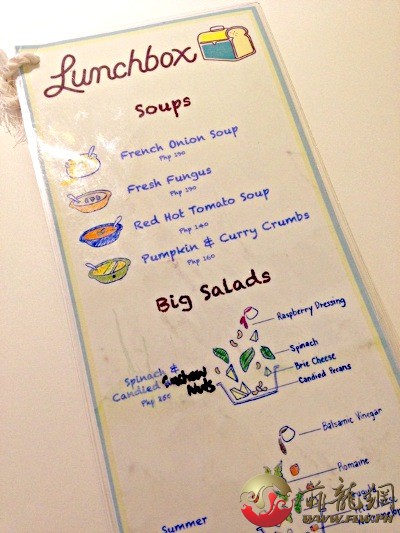 Lunchbox
Soups
French Onion Soup
Php 290
Fresh Fungus
Php 290
Red Hot Tomato Soup
Php 240
Pumpkin & Curry Crumbs
Php 260
Big Salads
Raspberry Dressing
Spinach
Brie Cheese
Candied Pecans
Spinach &
Candied Cashew
Nuts
Php 280
Balsamic Vinegar
Romaine
Summer